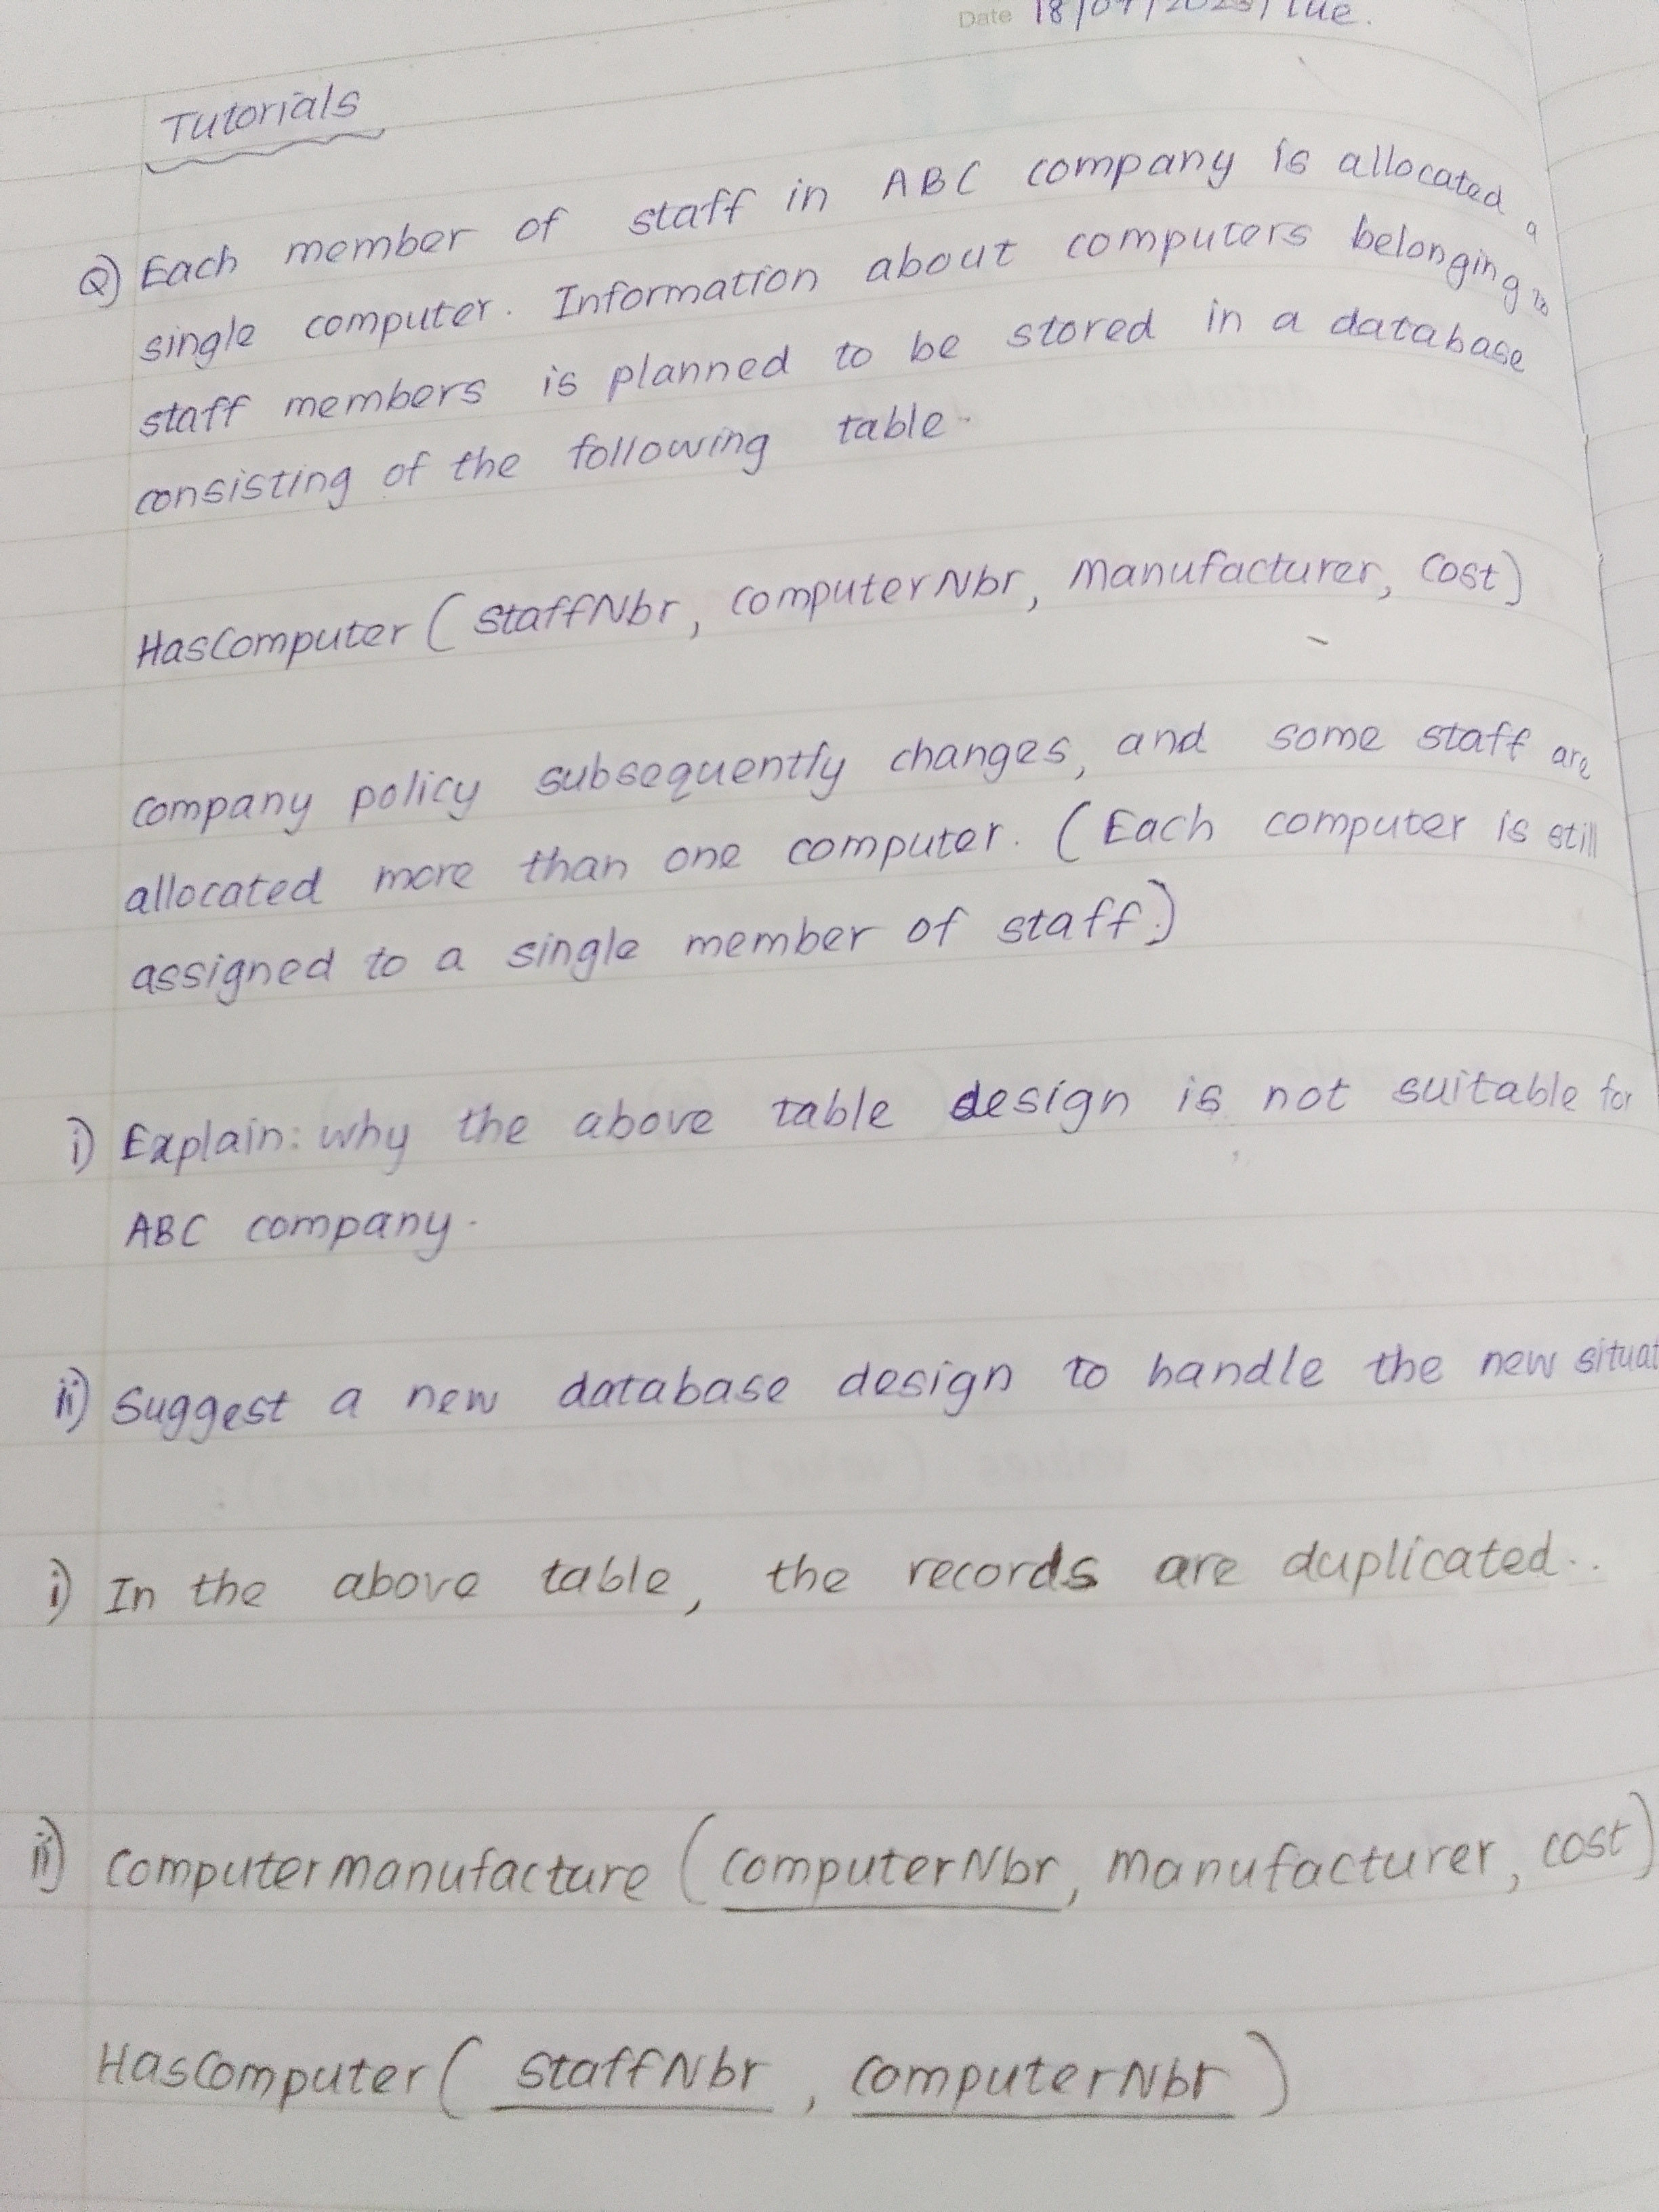 Date 18/07/2023/Tue.
Tutorials
Q) Each member of staff in ABC company is allocated a
single computer. Information about computers belonging to
staff members is planned to be stored in a database
consisting of the following table.
HasComputer ( StaffNbr, ComputerNbr, Manufacturer, Cost)
Company policy subsequently changes, and some staff are
allocated more than one computer. ( Each computer is still
assigned to a single member of staff.)
i) Explain: why the above table design is not suitable for
ABC company.
ii) Suggest a new database design to handle the new situat
i) In the above table, the records are duplicated..
ii) Computermanufacture ( ComputerNbr, Manufacturer, Cost)
HasComputer ( StaffNbr, ComputerNbr )